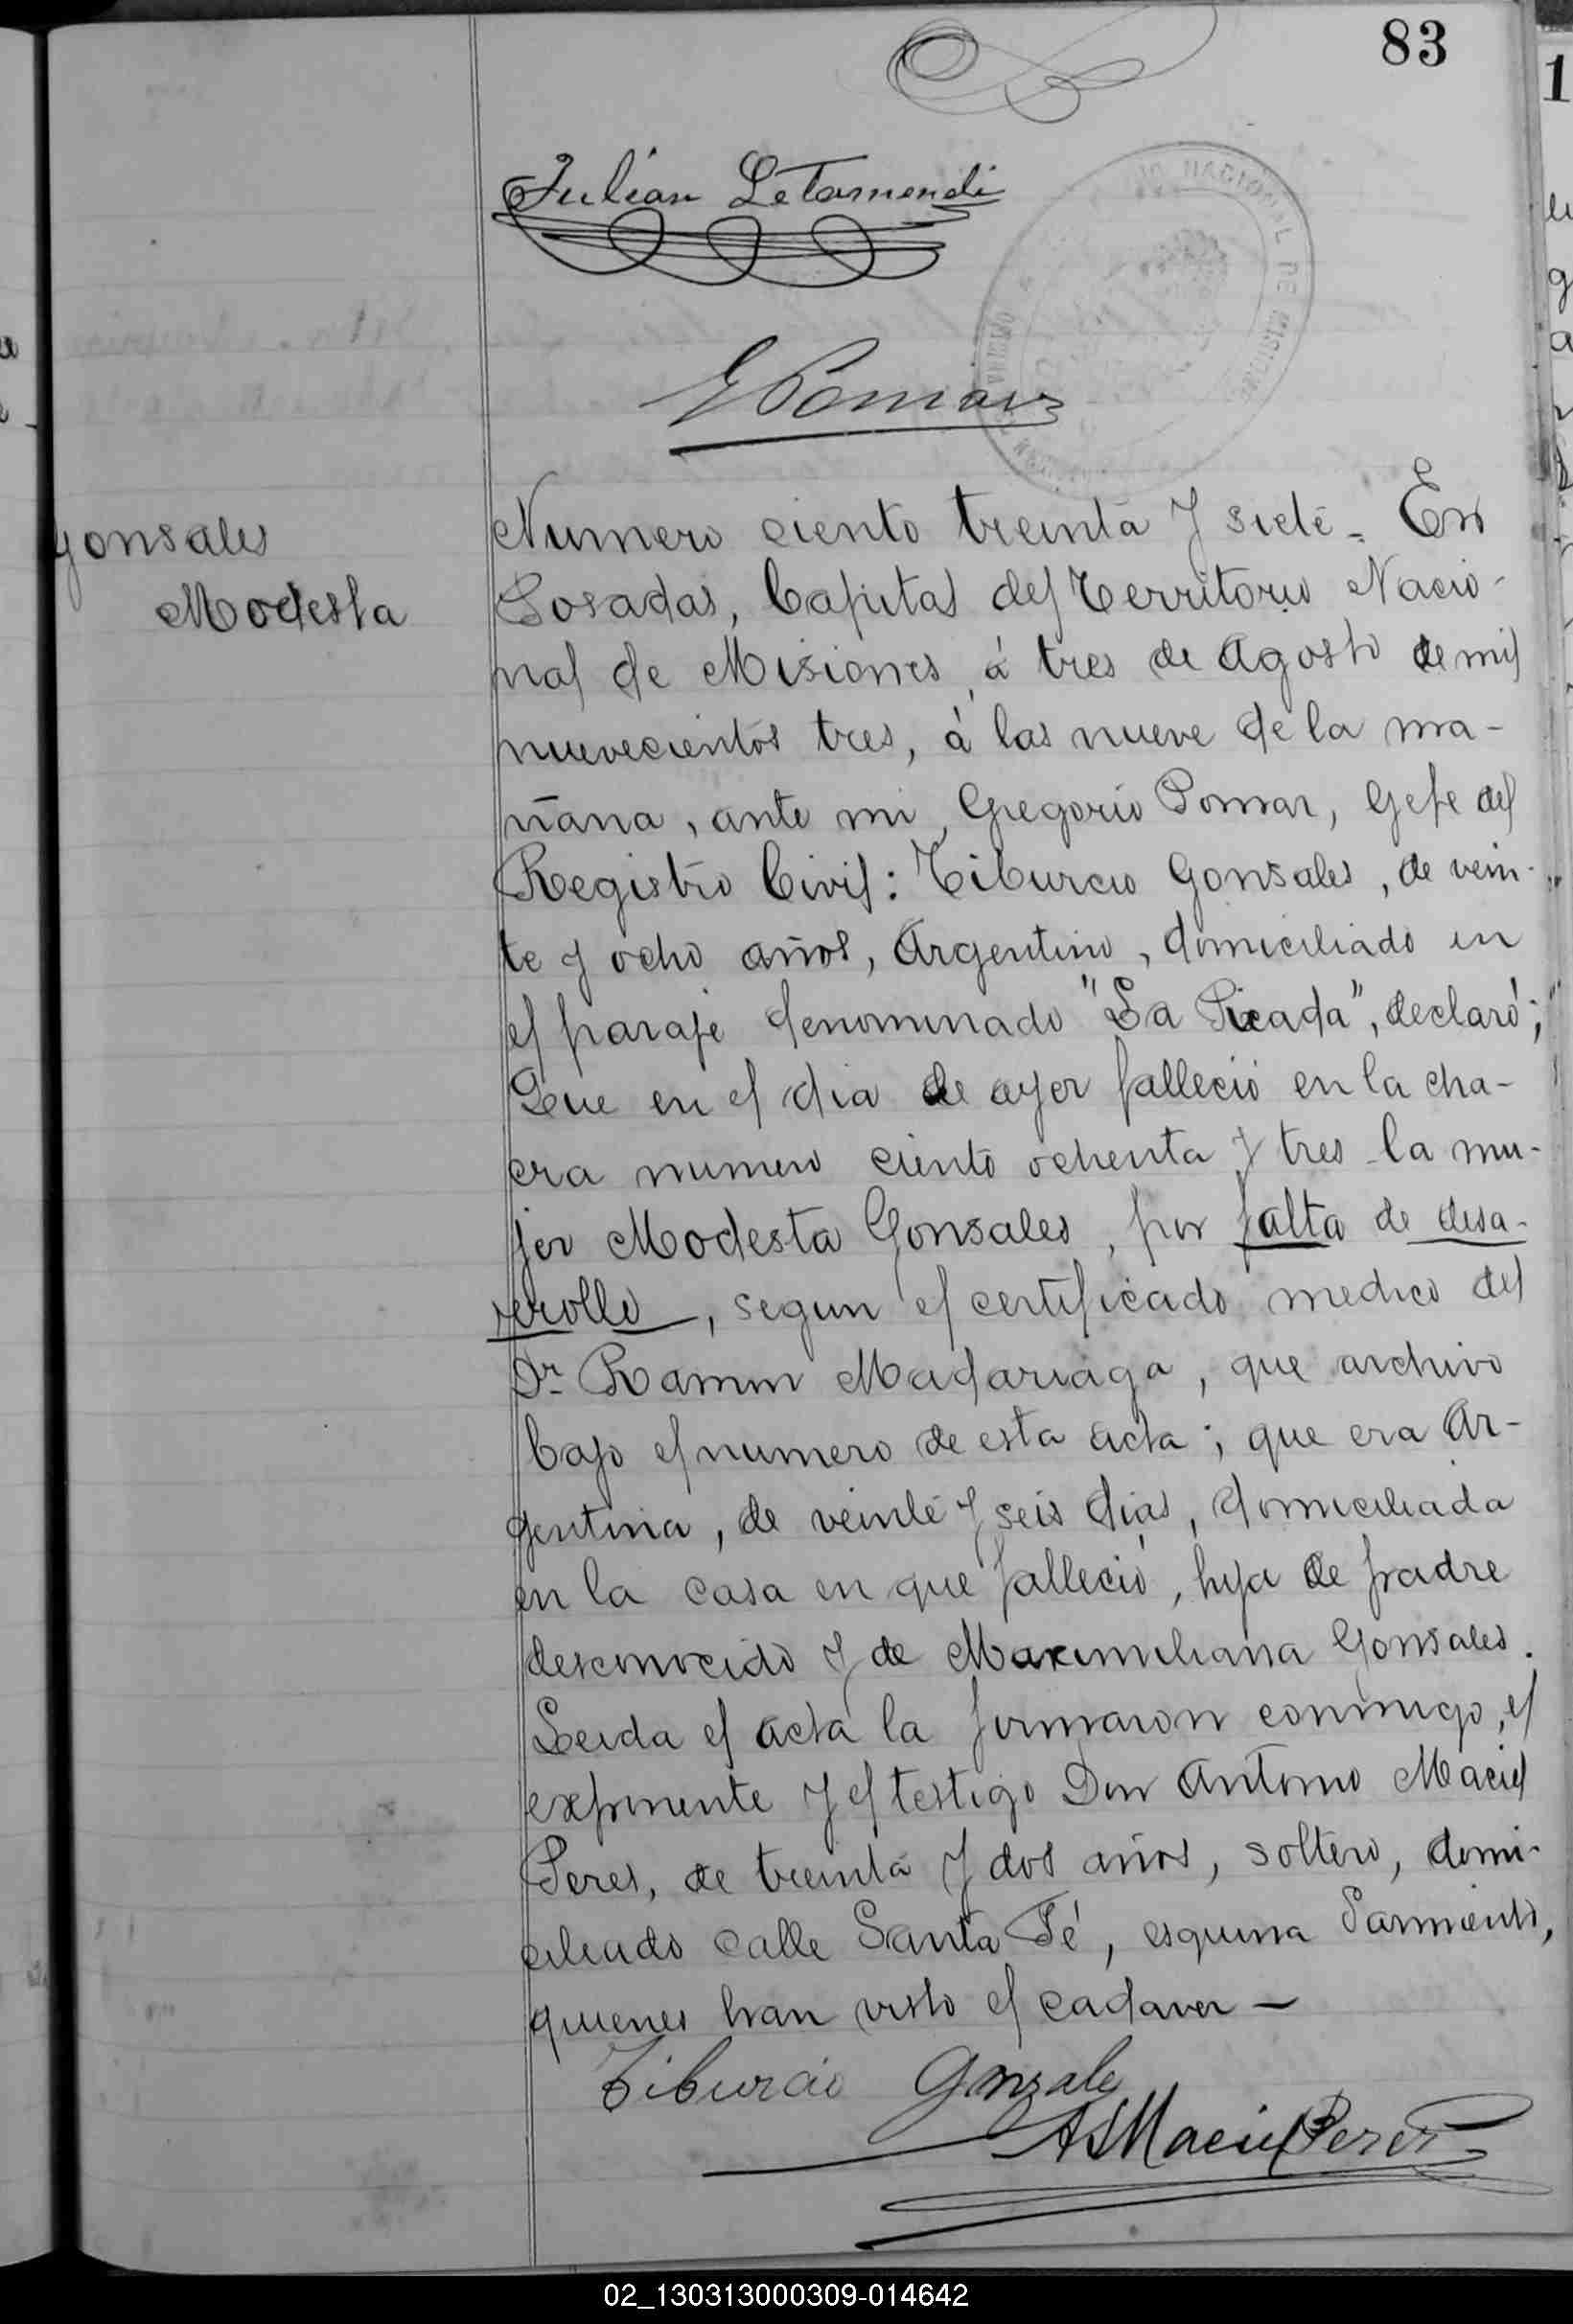 83
Julian Letamendi
G Pomar
NACIONAL DE MISIONES
Gonsales
Modesta
Numero ciento treinta y siete. En
Posadas, Capital del Territorio Nacio-
nal de Misiones, á tres de Agosto de mil
nuevecientos tres, á las nueve de la ma-
ñana, ante mi, Gregorio Pomar, Gefe del
Registro Civil: Tiburcio Gonsales, de vein-
te y ocho años, Argentino, domiciliado en
el paraje denominado "La Picada", declaró;
Que en el dia de ayer falleció en la cha-
cra numero ciento ochenta y tres la mu-
jer Modesta Gonsales, por falta de desa-
rrollo, segun el certificado medico del
Dr Ramon Madariaga, que archivo
bajo el numero de esta acta; que era Ar-
gentina, de veinte y seis dias, domiciliada
en la casa en que falleció, hija de padre
desconocido y de Maximiliana Gonsales.
Leida el acta la firmaron conmigo, el
exponente y el testigo Don Antonio Maciel
Peres, de treinta y dos años, soltero, domi-
ciliado calle Santa Fé, esquina Sarmiento,
quienes han visto el cadaver —
Tiburcio Gonsales
A Maciel Perez
02_130313000309-014642